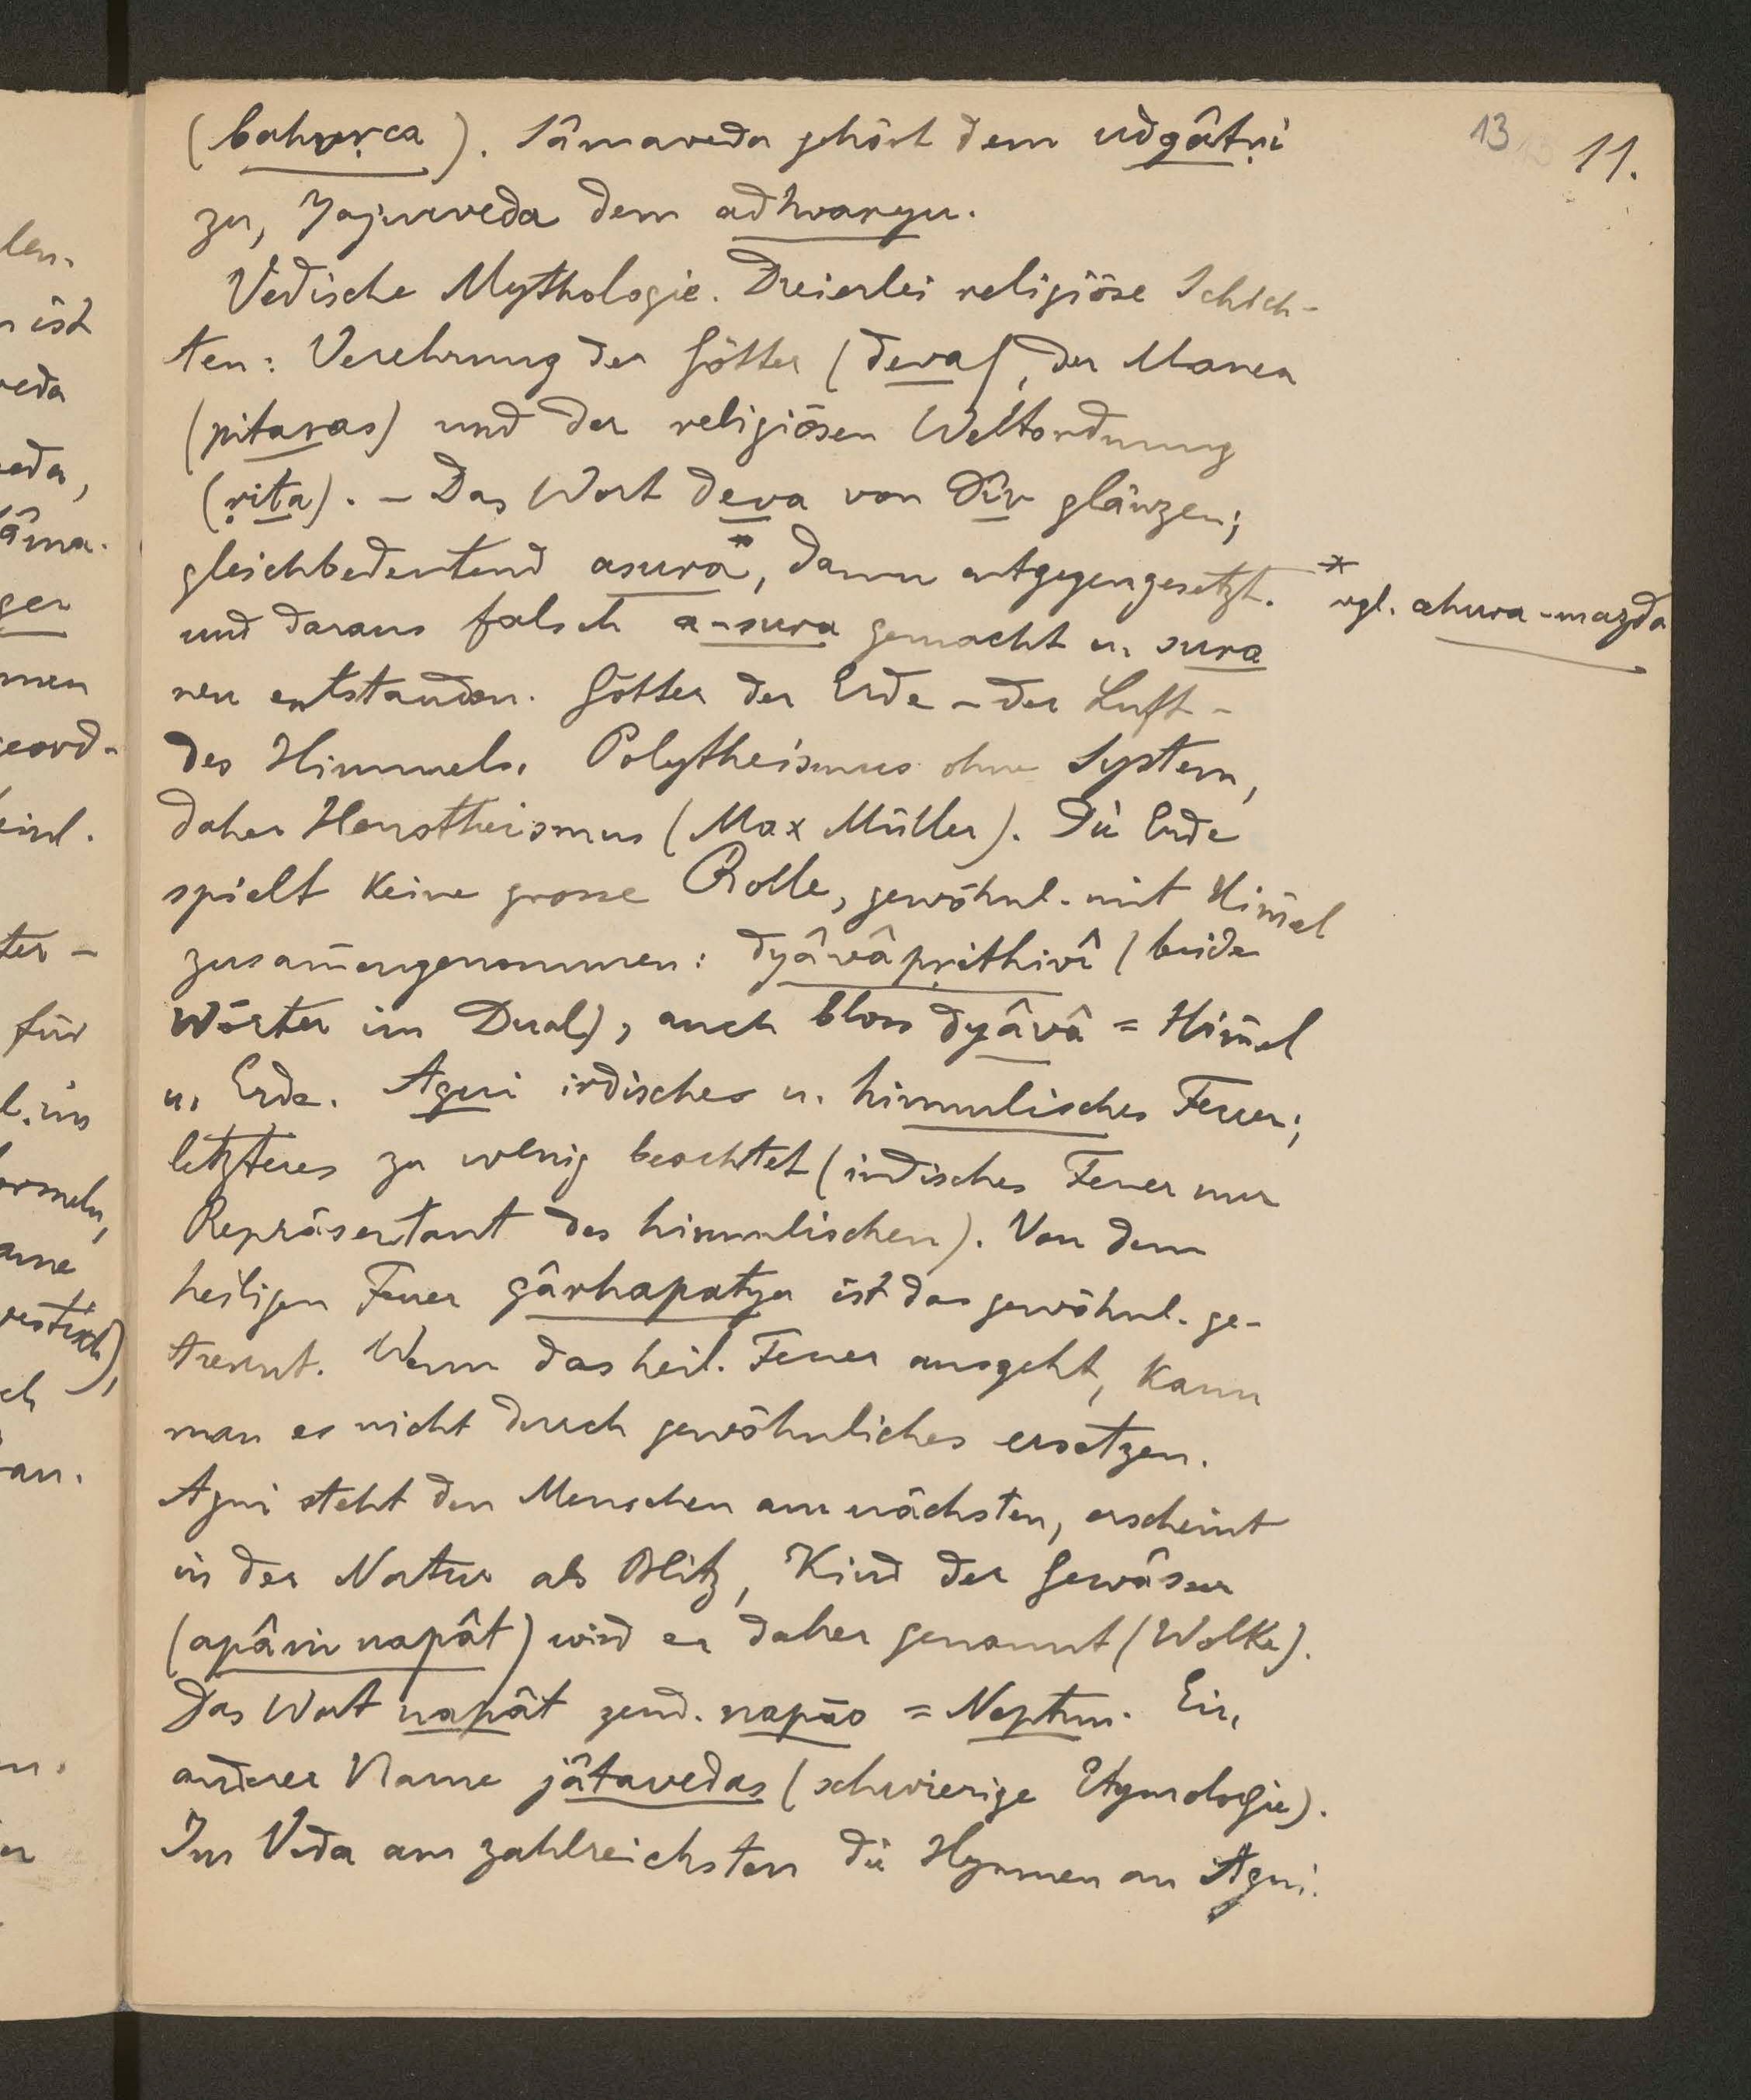 13 11.
(bahvṛca). Sâmaveda gehört dem udgâtṛi
zu, Yajurveda dem adhvaryu.
Vedische Mythologie. Dreierlei religiöse Schich-
ten: Verehrung der Götter (deva), der Manen
(pitaras) und der religiösen Weltordnung
(ṛita). – Das Wort deva von div glänzen;
gleichbedeutend asura*, dann entgegengesetzt.
* vgl. ahura-mazda
und daraus falsch a-sura gemacht u. sura
neu entstanden. Götter der Erde – der Luft –
des Himmels. Polytheismus ohne System,
daher Henotheismus (Max Müller). Die Erde
spielt keine grosse Rolle, gewöhnl. mit Him̄el
zusam̄engenommen: dyâvâpṛithivî (beide
Wörter im Dual), auch bloss dyâvâ = Him̄el
u. Erde. Agni irdisches u. himmlisches Feuer;
letzteres zu wenig beachtet (irdisches Feuer nur
Repräsentant des himmlischen). Von dem
heiligen Feuer gârhapatya ist das gewöhnl. ge-
trennt. Wenn das heil. Feuer ausgeht, kann
man es nicht durch gewöhnliches ersetzen.
Agni steht den Menschen am nächsten, erscheint
in der Natur als Blitz, Kind der Gewässer
(apâṁ napât) wird er daher genannt (Wolke).
Das Wort napât zend. napāo = Neptun. Ein
anderer Name jâtavedas (schwierige Etymologie).
Im Veda am zahlreichsten die Hymnen an Agni.